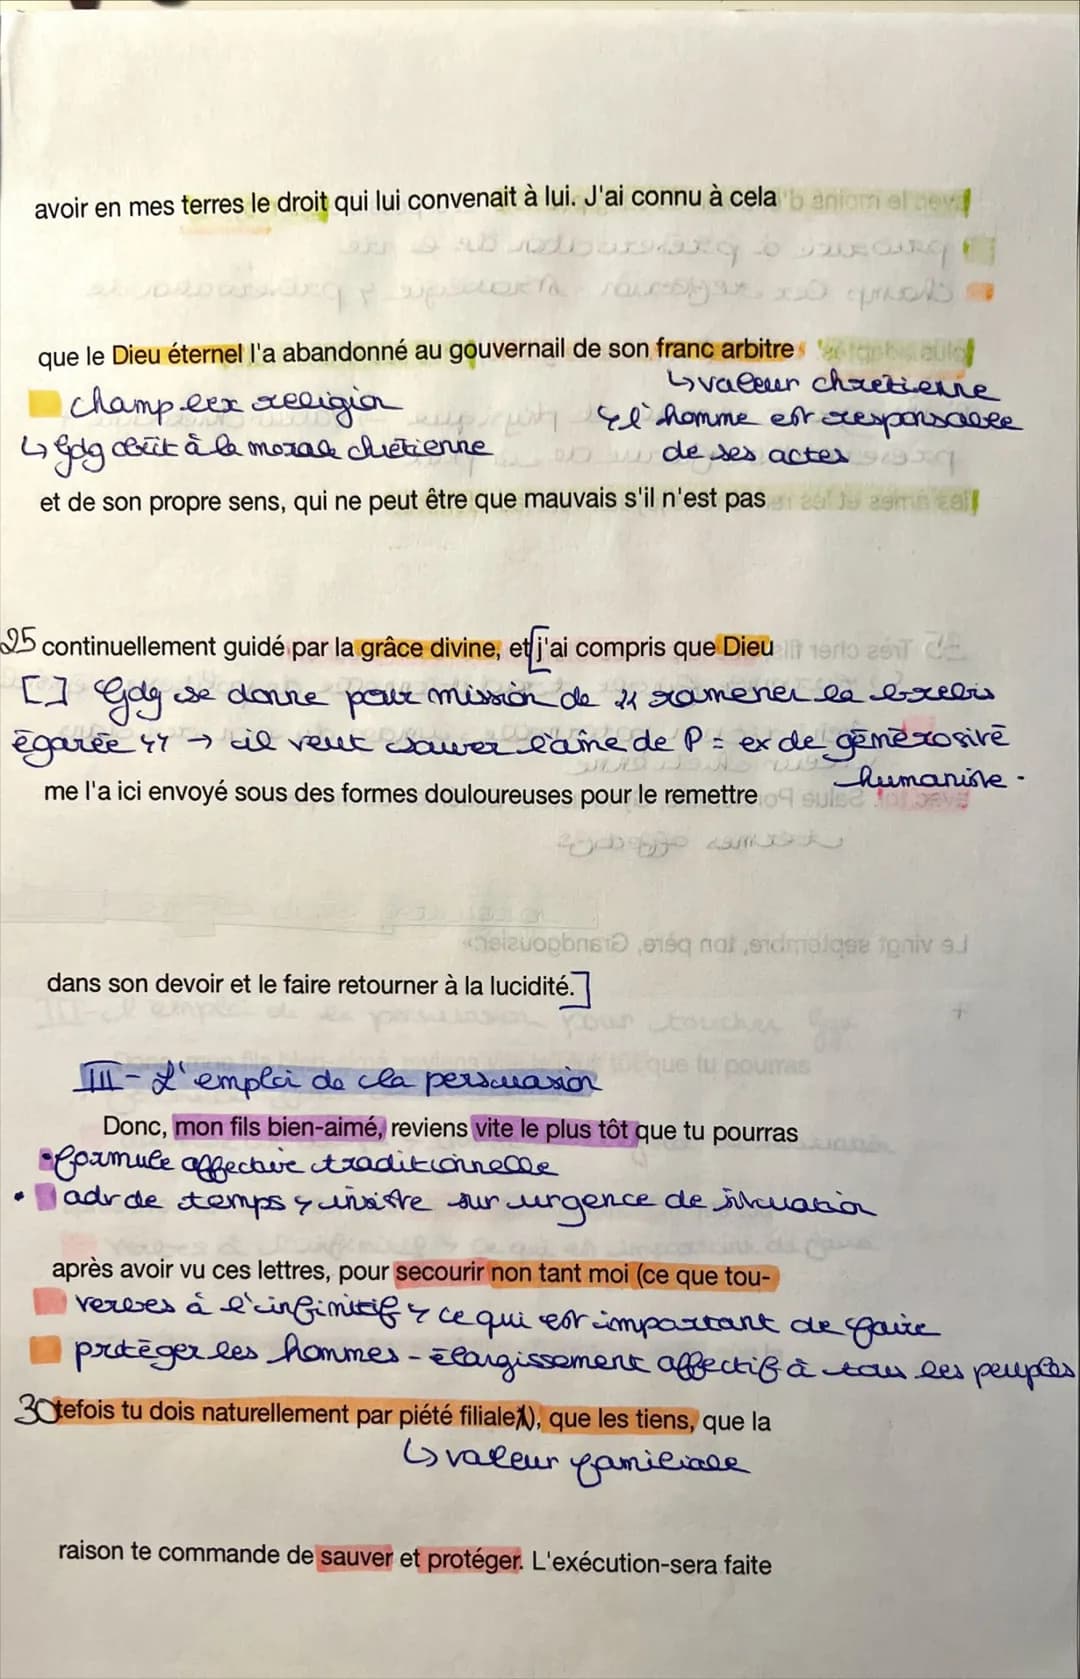 avoir en mes terres le droit qui lui convenait à lui. J'ai connu à cela
que le Dieu éternel l'a abandonné au gouvernail de son franc arbitre
↳ valeur chrétienne
champ lex religion
↳ l'homme est responsable
↳ Gdg obéit à la morale chrétienne
de ses actes
et de son propre sens, qui ne peut être que mauvais s'il n'est pas
25 continuellement guidé par la grâce divine, et [j'ai compris que Dieu
[ ] Gdg se donne pour mission de "ramener la brebis
égarée" → il veut sauver l'âme de P = ex de générosité
humaniste.
me l'a ici envoyé sous des formes douloureuses pour le remettre
dans son devoir et le faire retourner à la lucidité.]
III - L'emploi de la persuasion
Donc, mon fils bien-aimé, reviens vite le plus tôt que tu pourras
• formule affective traditionnelle
• adv de temps ↳ insiste sur urgence de situation
après avoir vu ces lettres, pour secourir non tant moi (ce que tou-
verbes à l'infinitif ↳ ce qui est important de faire
protéger les hommes - élargissement affectif à tous les peuples
30 tefois tu dois naturellement par piété filiale1), que les tiens, que la
↳ valeur familiale
raison te commande de sauver et protéger. L'exécution-sera faite